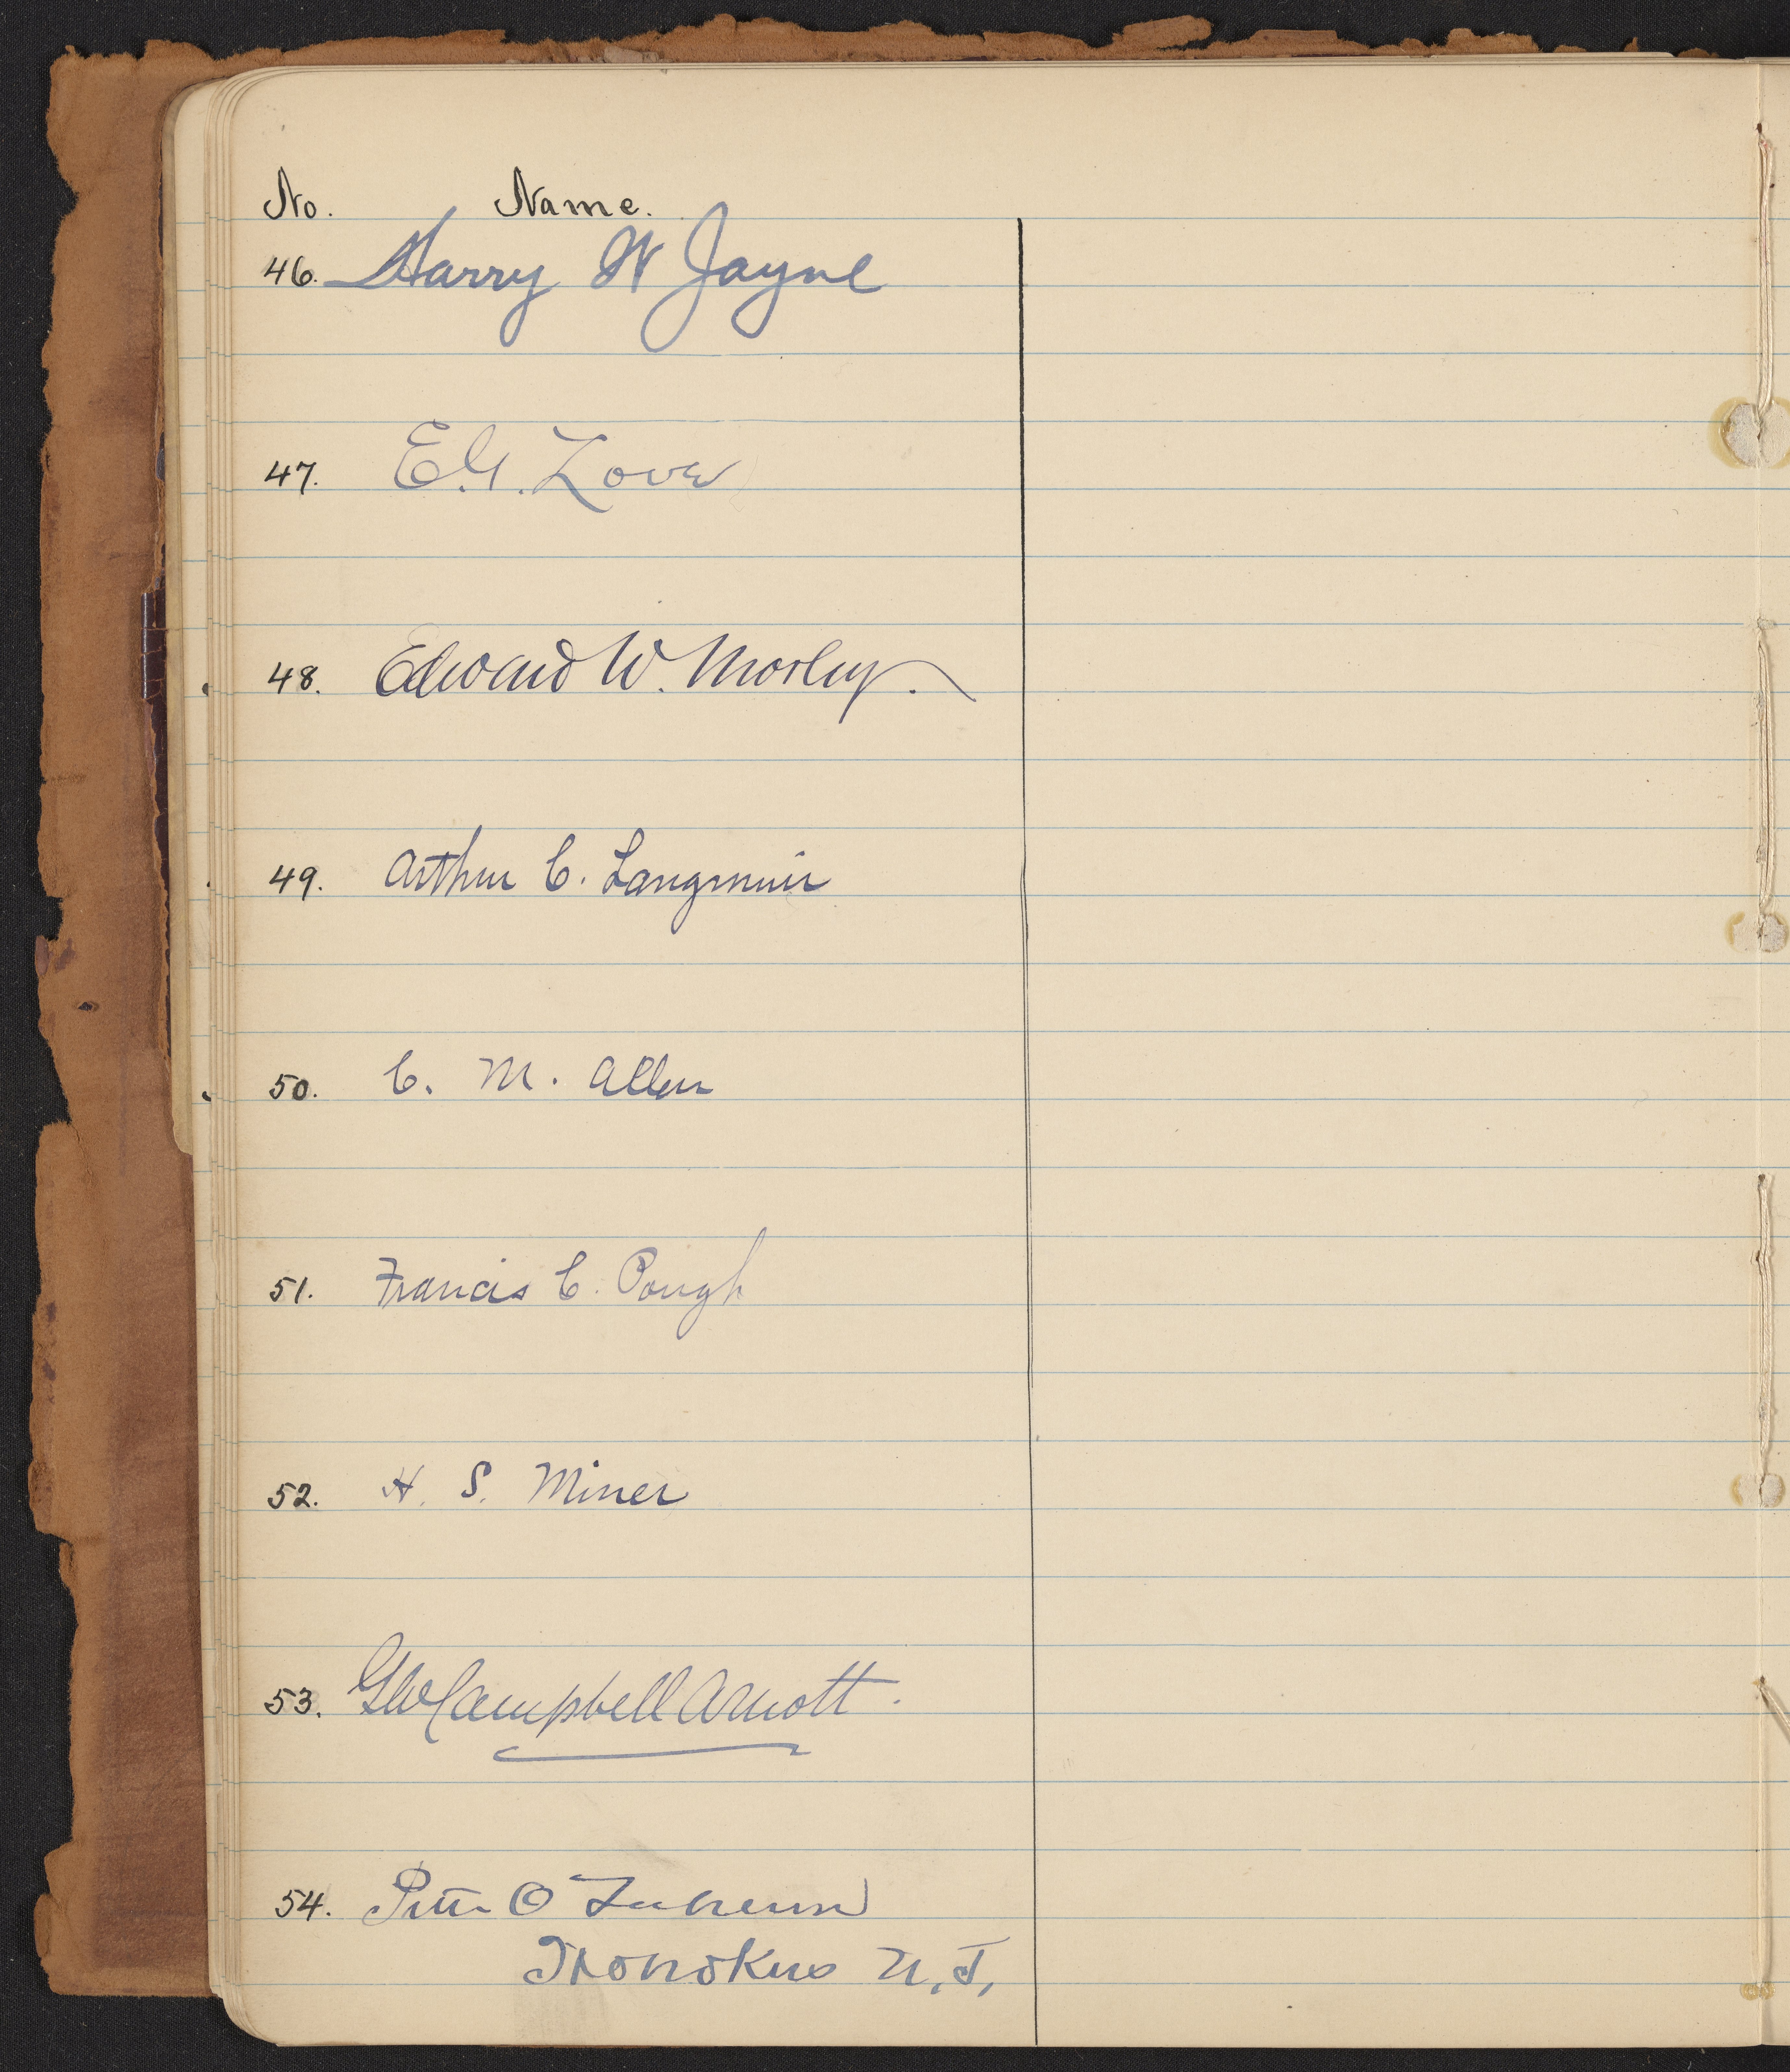 No. Name.
46. Harry W Jayne
47. E.G. Love
48. Edward W. Morley.
49. Arthur C. Langmuir
50. C. M. Allen
51. Francis C. Pough
52. H. S. Miner
53. GW Campbell Arnott.
54. O
Hohokus N.J.